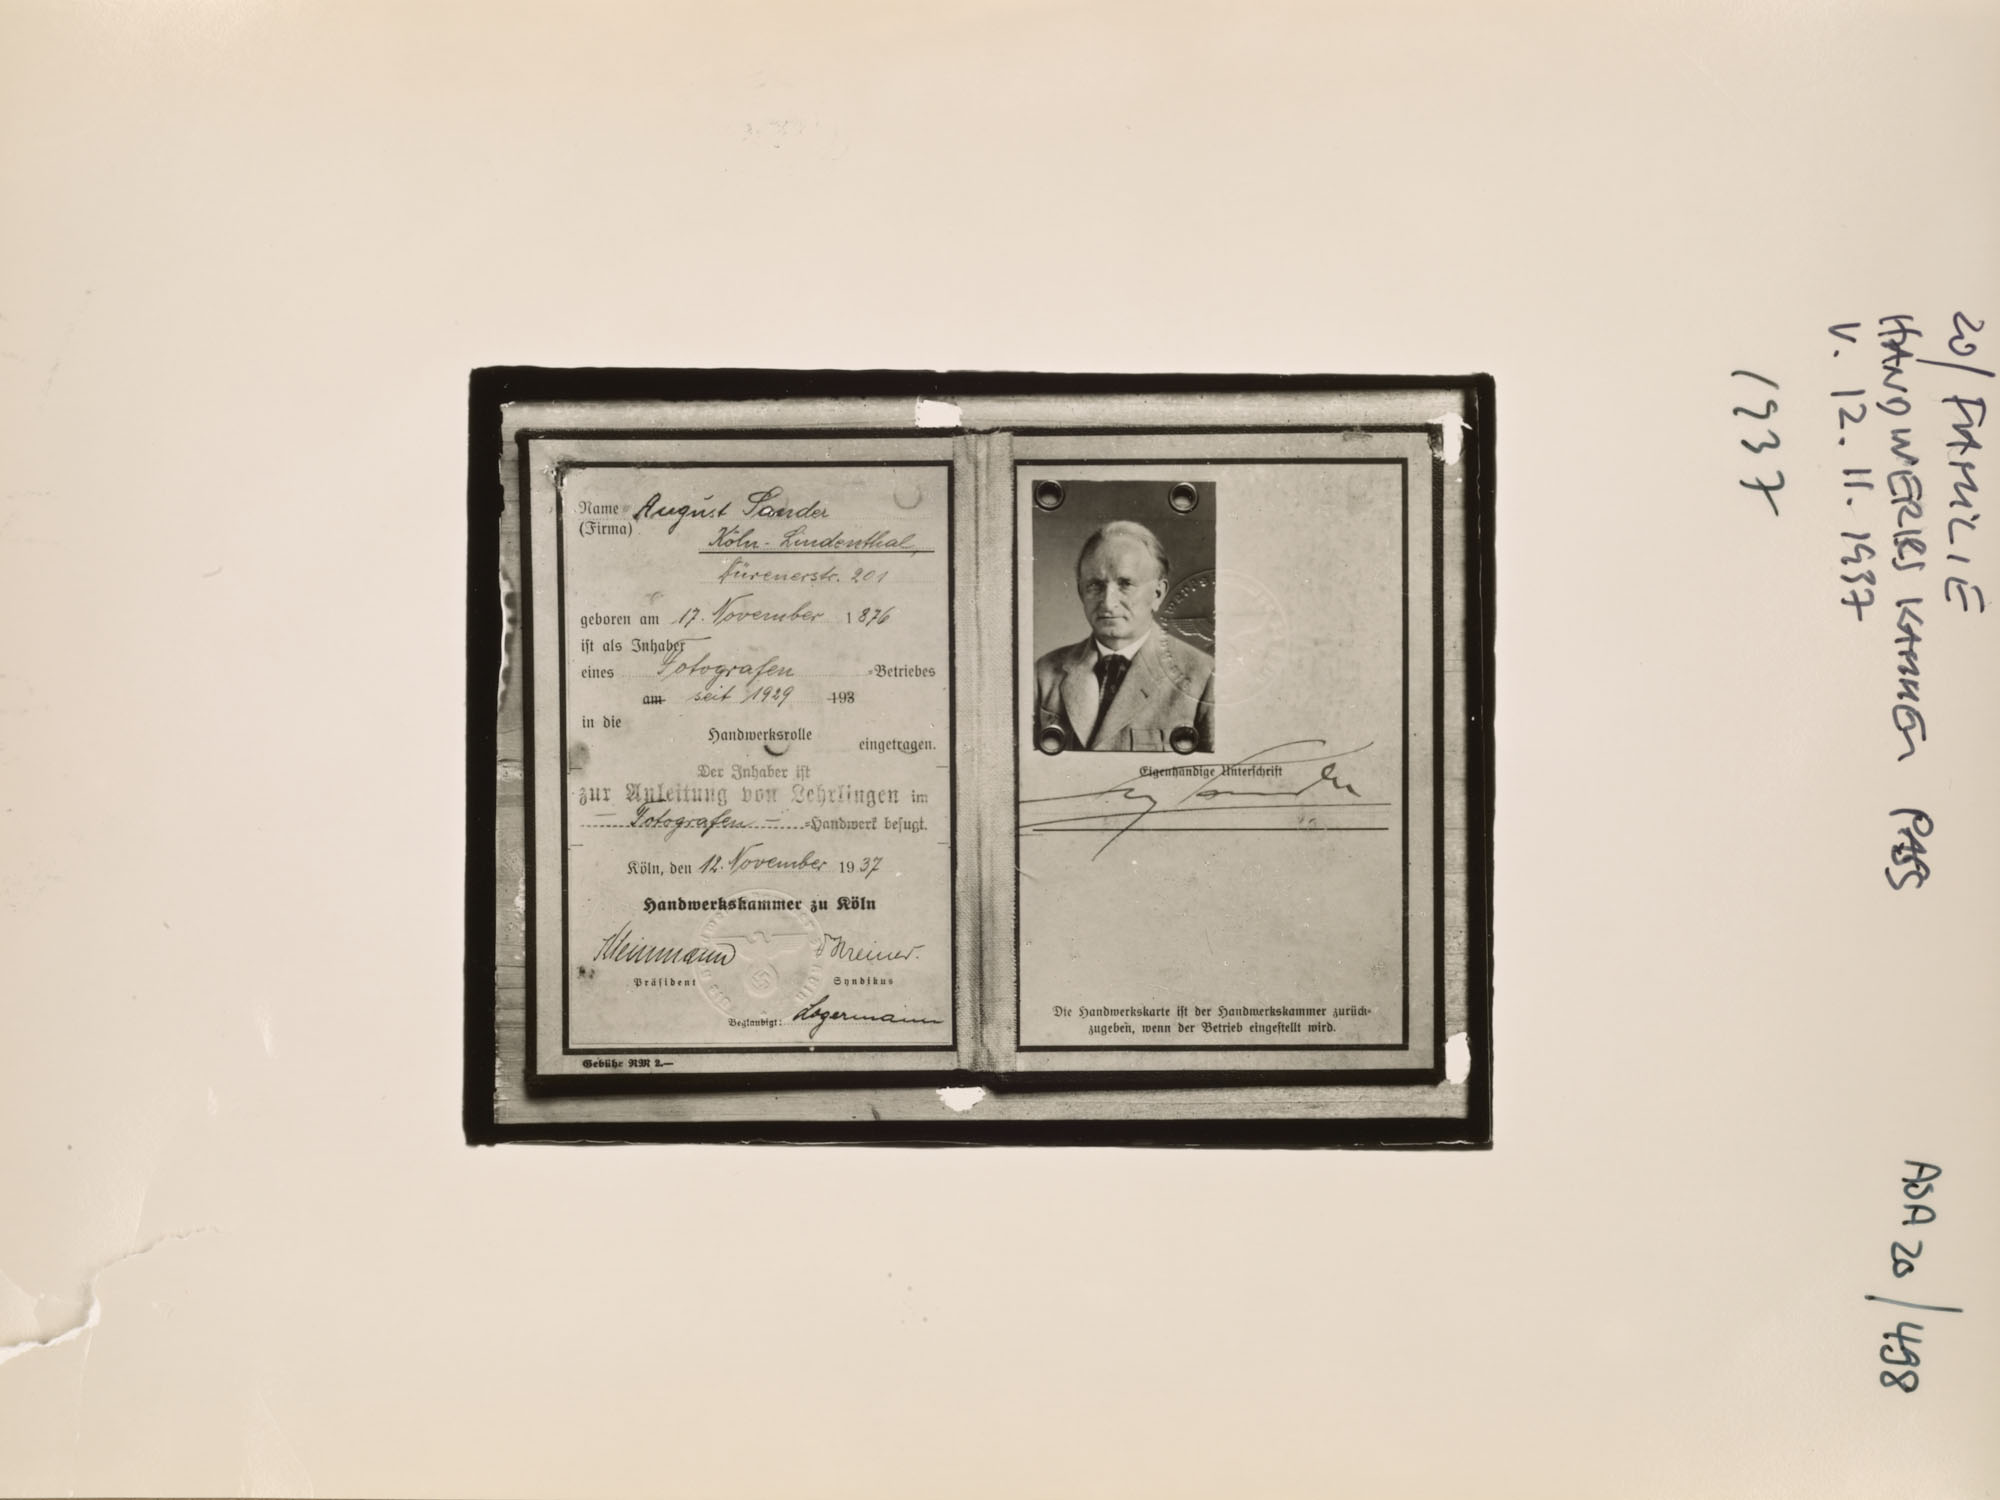 Name August Sander
(Firma)
Köln-Lindenthal,
Dürenerstr. 201
geboren am 17. November 1876
ist als Inhaber
eines Fotografen =Betriebes
am seit 1929 193
in die
Handwerksrolle
eingetragen.
Der Inhaber ist
zur Anleitung von Lehrlingen im
Fotografen =Handwerk befugt.
Köln, den 12. November 1937
Handwerkskammer zu Köln
Präsident Syndikus
Beglaubigt:
Gebühr RM 2.—
Eigenhändige Unterschrift
Die Handwerkskarte ist der Handwerkskammer zurück-
zugeben, wenn der Betrieb eingestellt wird.
20/FAMILIE
HANDWERKS KAMMER PASS
V. 12.11.1937
1937
ASA 20/498